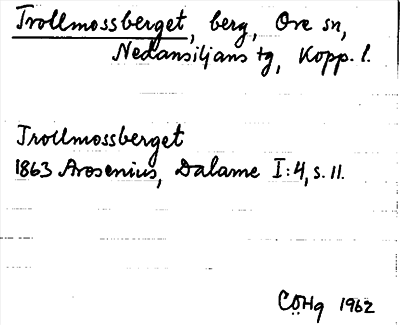 Trollmossberget, berg, Ore sn,
Nedansiljans tg, Kopp. l.
Trollmossberget
1863 Arosenius, Dalarne I:4, s. 11.
CÖHg 1962